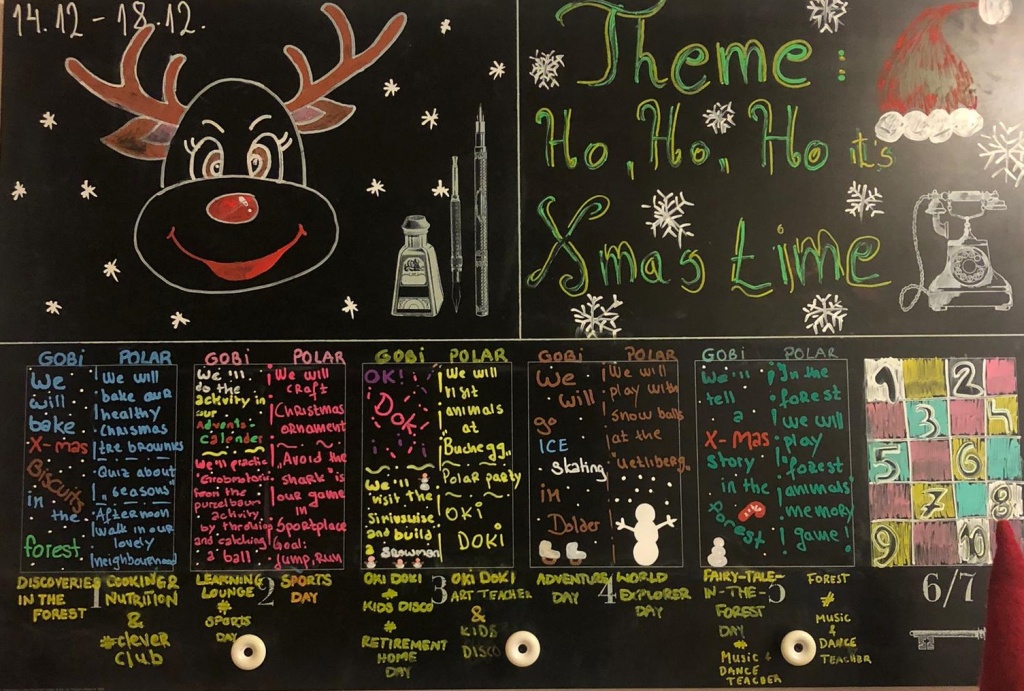 14.12 - 18.12.
Theme:
Ho, Ho, Ho it's
Xmas time
GOBi
We
will
bake
X-mas
Biscuits
in
the
forest
POLAR
We will
bake our
healthy
Christmas
tre brownies
Quiz about
"seasons"
Afternoon
walk in our
lovely
neighbourhood
GOBi
We'll
do the
activity in
our
Advents
calender
We'll practice
from the
purzelbaum
activity
by throwing
and catching
a ball
POLAR
We will
craft
Christmas
ornament
"Avoid the
shark" is
our game
in
Sportplace
Goal:
jump, run
GOBi
OK!
Doki
We'll
visit the
Siriuswise
and build
a snowman
POLAR
We will
visit
animals
at
Buchegg.
Polar party
OKi
DOKi
GOBi
We
will
go
ICE
skating
in
Dolder
POLAR
We will
play with
snow balls
at the
"uetliberg"
GOBi
We'll
tell
a
X-MAS
story
in the
forest
POLAR
In the
forest
we will
play
"forest
animals"
memory
game!
1 2
3 4
5 6
7 8
9 10
DISCOVERIES
IN THE
FOREST
1
COOKING &
NUTRITION
&
#clever
club
LEARNING
LOUNGE
#
SPORTS
DAY
2
SPORTS
DAY
OKI DOKI
#
KIDS DISCO
#
RETIREMENT
HOME
DAY
3
OKI DOKI
ART TEACHER
&
KIDS
DISCO
ADVENTURE
DAY
4
WORLD
EXPLORER
DAY
FAIRY-TALE-
IN-THE-
FOREST
DAY
#
MUSIC &
DANCE
TEACHER
5
FOREST
#
MUSIC
&
DANCE
TEACHER
6/7